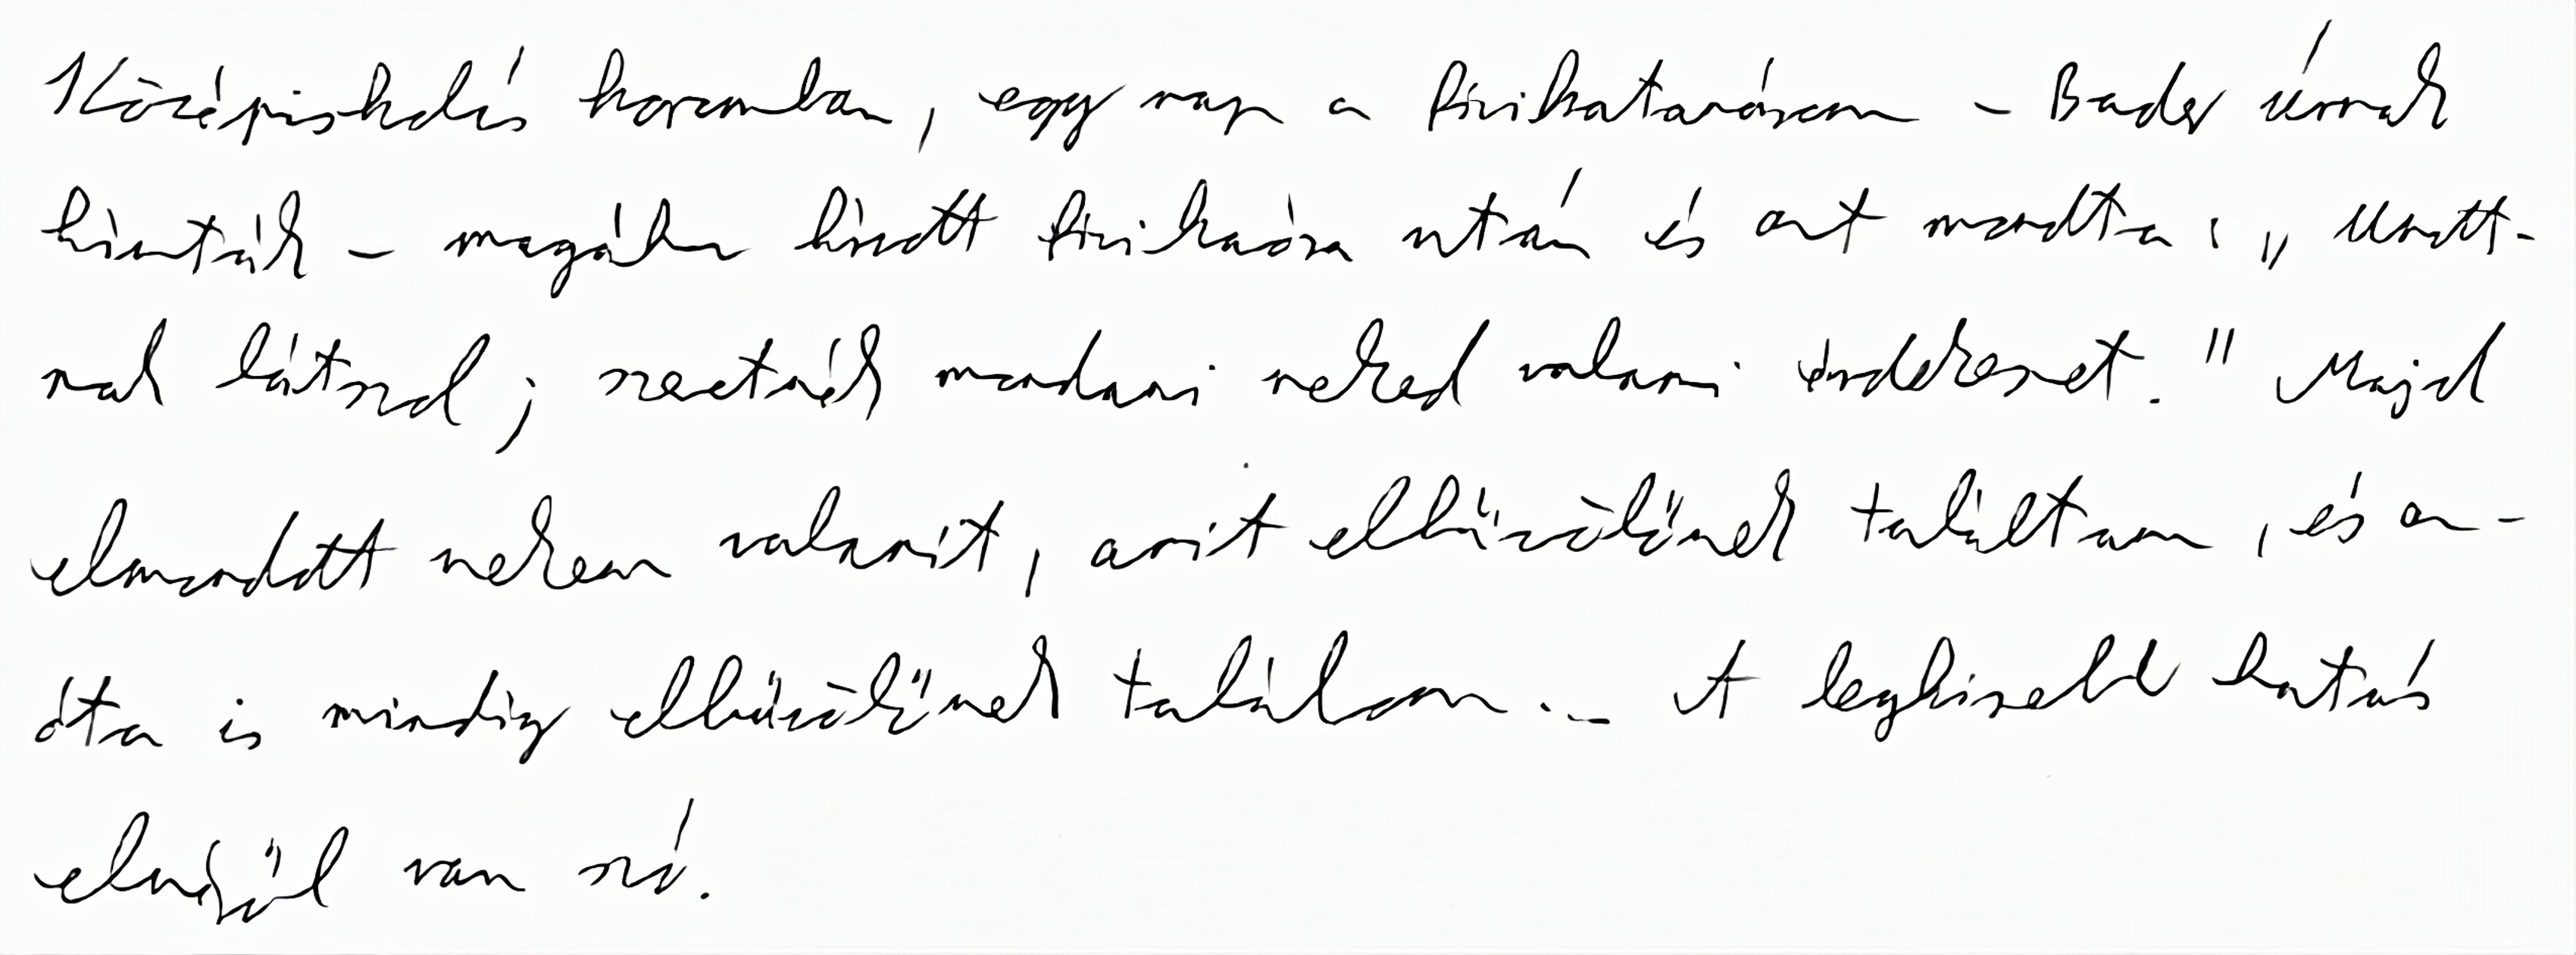 Középiskolás koromban, egy nap a fizikatanárom – Bader úrnak
hívták – magához hívott fizikaóra után és azt mondta: „Unott-
nak látszol; szeretnék mondani neked valami érdekeset." Majd
elmondott nekem valamit, amit elbűvölőnek találtam, és az-
óta is mindig elbűvölőnek találom. – A legkisebb hatás
elvéről van szó.